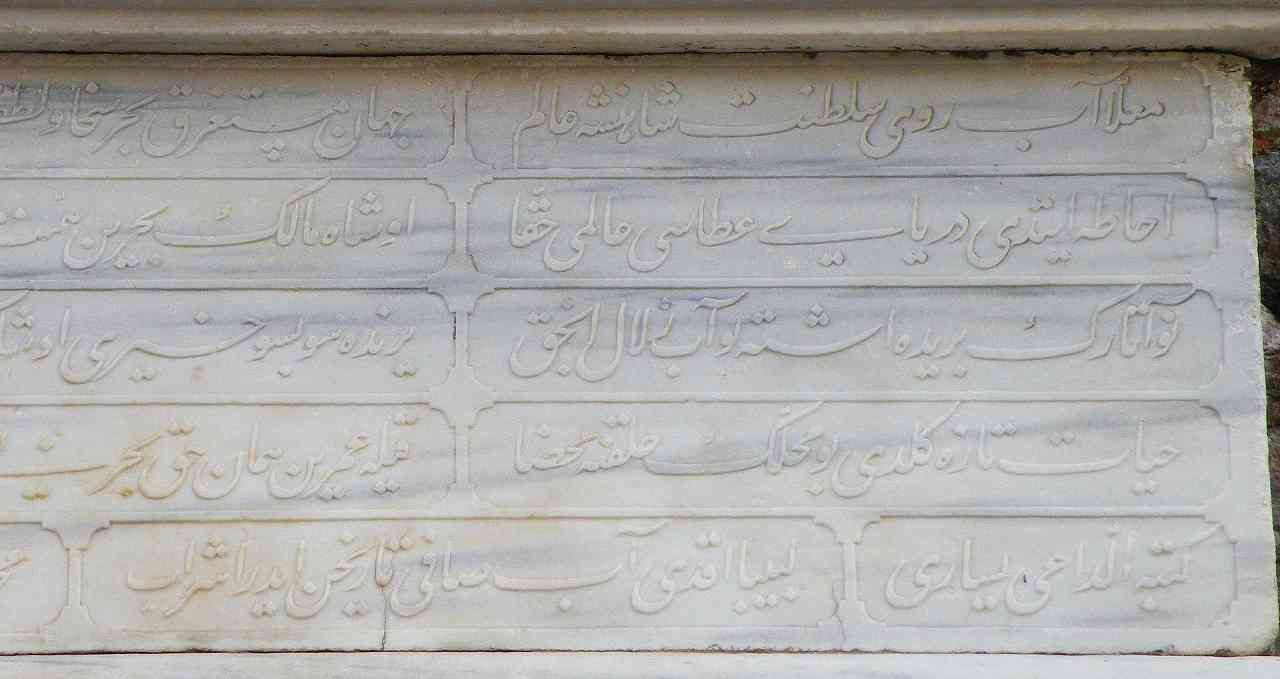 معلا آب روی سلطنت شاهنشه عالم جهان مستغرق بحر سخا و لطف
احاطه ایتدی دریای عطاسی عالمی حقا او شاه مالك بحرین
نو آثارك بریده اشته بو آب زلال الحق برنده سو بسو خیری
حیات تازه كلدی بو محلك خلقنه محضا قیله عمرین همان حق
كتبه الداعی یساری لبیبا اقدی آب صافی تاریخن ایدر اشراب